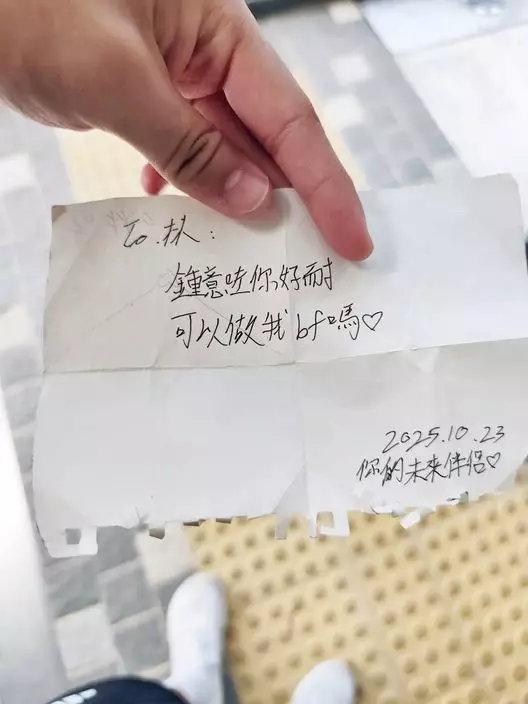 To. 林:
鍾意咗你好耐
可以做我 bf嗎♡
2025.10.23
你的未來伴侶♡